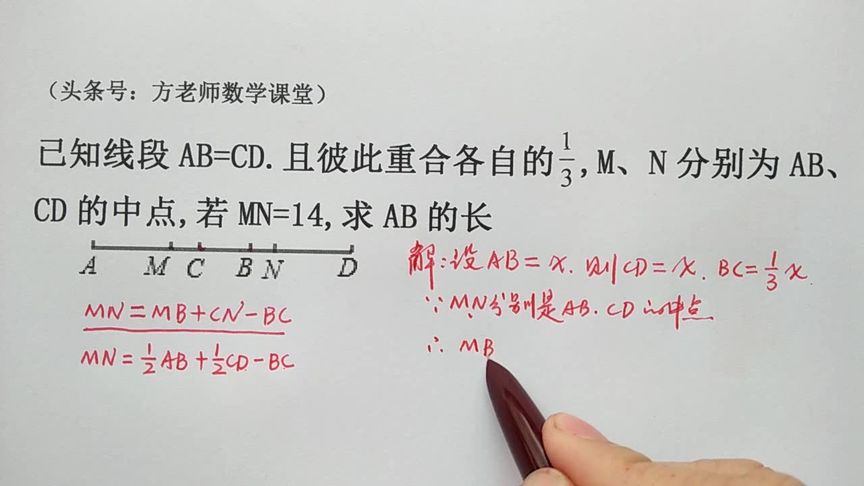 （头条号：方老师数学课堂）
已知线段 AB=CD.且彼此重合各自的1/3,M、N 分别为 AB、
CD 的中点,若 MN=14,求 AB 的长
A M C B N D
MN=MB+CN-BC
MN=1/2AB+1/2CD-BC
解:设AB=x.则CD=x.BC=1/3x
∵M.N分别是AB.CD的中点
∴ MB